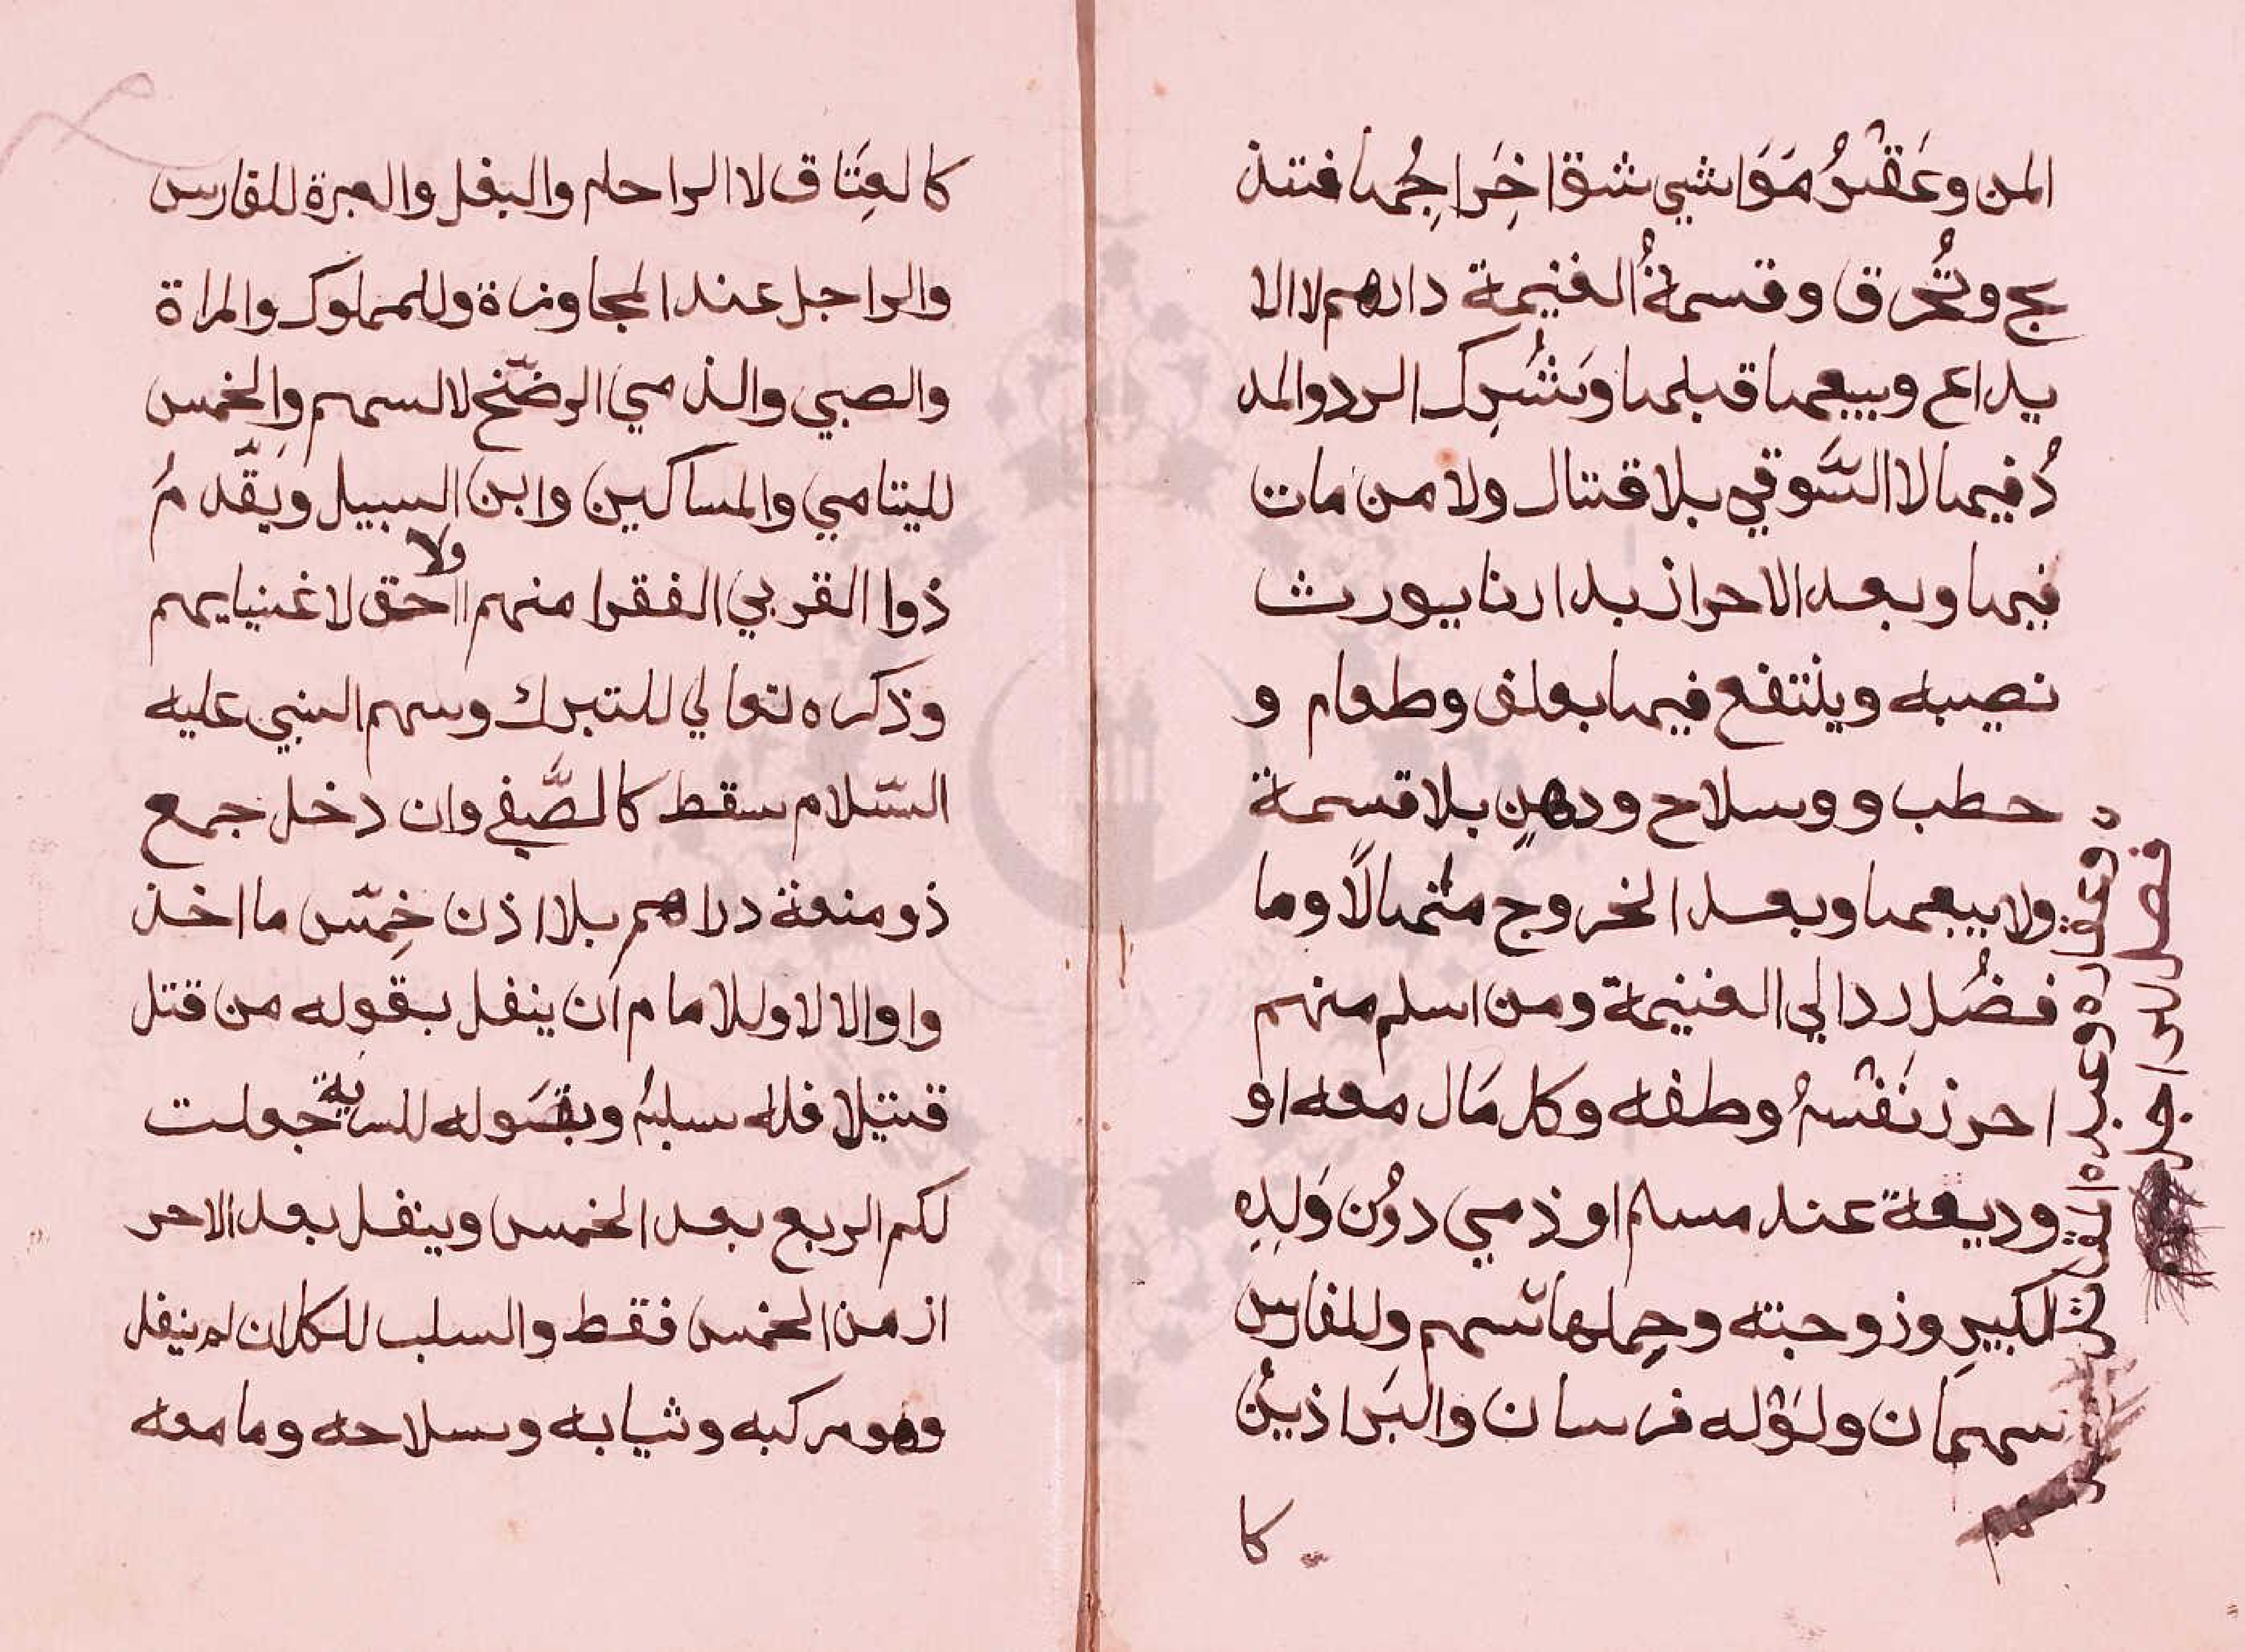 المن وعَقْرُ مَوَاشي شق اخِرَاجُها فتذ
بح وتُحْرق وقسمةُ الغنيمة دارهم لا الا
يداع وبيعها قبلها وشُرِك الردوالمد
دُ فيها لا السَّوقي بلا قتال ولا من مات
فيها وبعد الاحراز بدارنا يورث
نصيبه وينتفع فيها بعلف وطعام و
حطب و وسلاح ودهنٍ بلا قسمة
ولا يبيعها وبعد الخروج منها لَا وما
فضُل رد الي الغنيمة ومن اسلم منهم
احرز نَفْسَهُ وطفله وكل مَال معه او
وديعة عند مسلم او ذمي دوُن وَلدِه
الكبيرِ وزوجته وحِملها سهم وللفارس
سهمان ولوْله فرسان والبَراذينْ
كا
كالعِتَاق لا الراحلة والبغل والعبرة للفارس
والراجل عند المجاوزة وللمملوك والمراة
والصبي والذمي الرضْخ لا السهم والخمس
لليتامي والمساكين وابن السبيل ويَقَّدمُ
ذوا القربي الفقرا منهم ولا حق لاغنيايهم
وذكره تعالي للتبرك وسهم النبي عليه
السَّلام سقط كالصَّفي وان دخل جمع
ذو منعة دراهم بلا اذن خِمّس ما اخذ
واوالا لا وللامام ان ينفل بقوله من قتل
قتيلا فله سلبهُ وبقَوله للسرية جعلت
لكم الربع بعد الخمس وينفل بعد الاحر
از من الخمس فقط والسلب للكل ان لم ينفل
وهو مركبه وثيابه وسلاحه وما معه